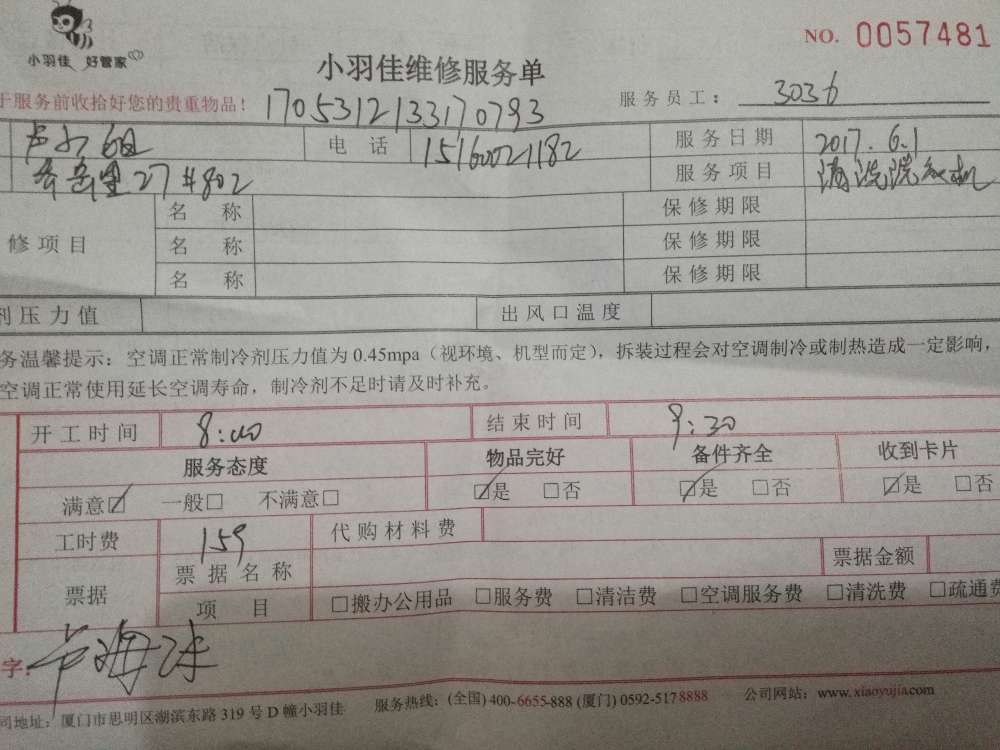 小羽佳 好管家
NO. 0057481
小羽佳维修服务单
于服务前收拾好您的贵重物品！ 1705312133170793 服务员工： 3036
卢小姐 电话 15160021182 服务日期 2017.6.1
27#802 服务项目 清洗洗衣机
修项目 名称 保修期限
名称 保修期限
名称 保修期限
剂压力值 出风口温度
务温馨提示：空调正常制冷剂压力值为0.45mpa（视环境、机型而定），拆装过程会对空调制冷或制热造成一定影响，
空调正常使用延长空调寿命，制冷剂不足时请及时补充。
开工时间 8:00 结束时间 9:30
服务态度 物品完好 备件齐全 收到卡片
满意☑ 一般□ 不满意□ ☑是 □否 ☑是 □否 ☑是 □否
工时费 159 代购材料费
票据 票据名称 票据金额
项目 □搬办公用品 □服务费 □清洁费 □空调服务费 □清洗费 □疏通费
字：卢海珠
司地址：厦门市思明区湖滨东路319号D幢小羽佳 服务热线：(全国) 400-6655-888 (厦门) 0592-5178888 公司网站：www.xiaoyujia.com